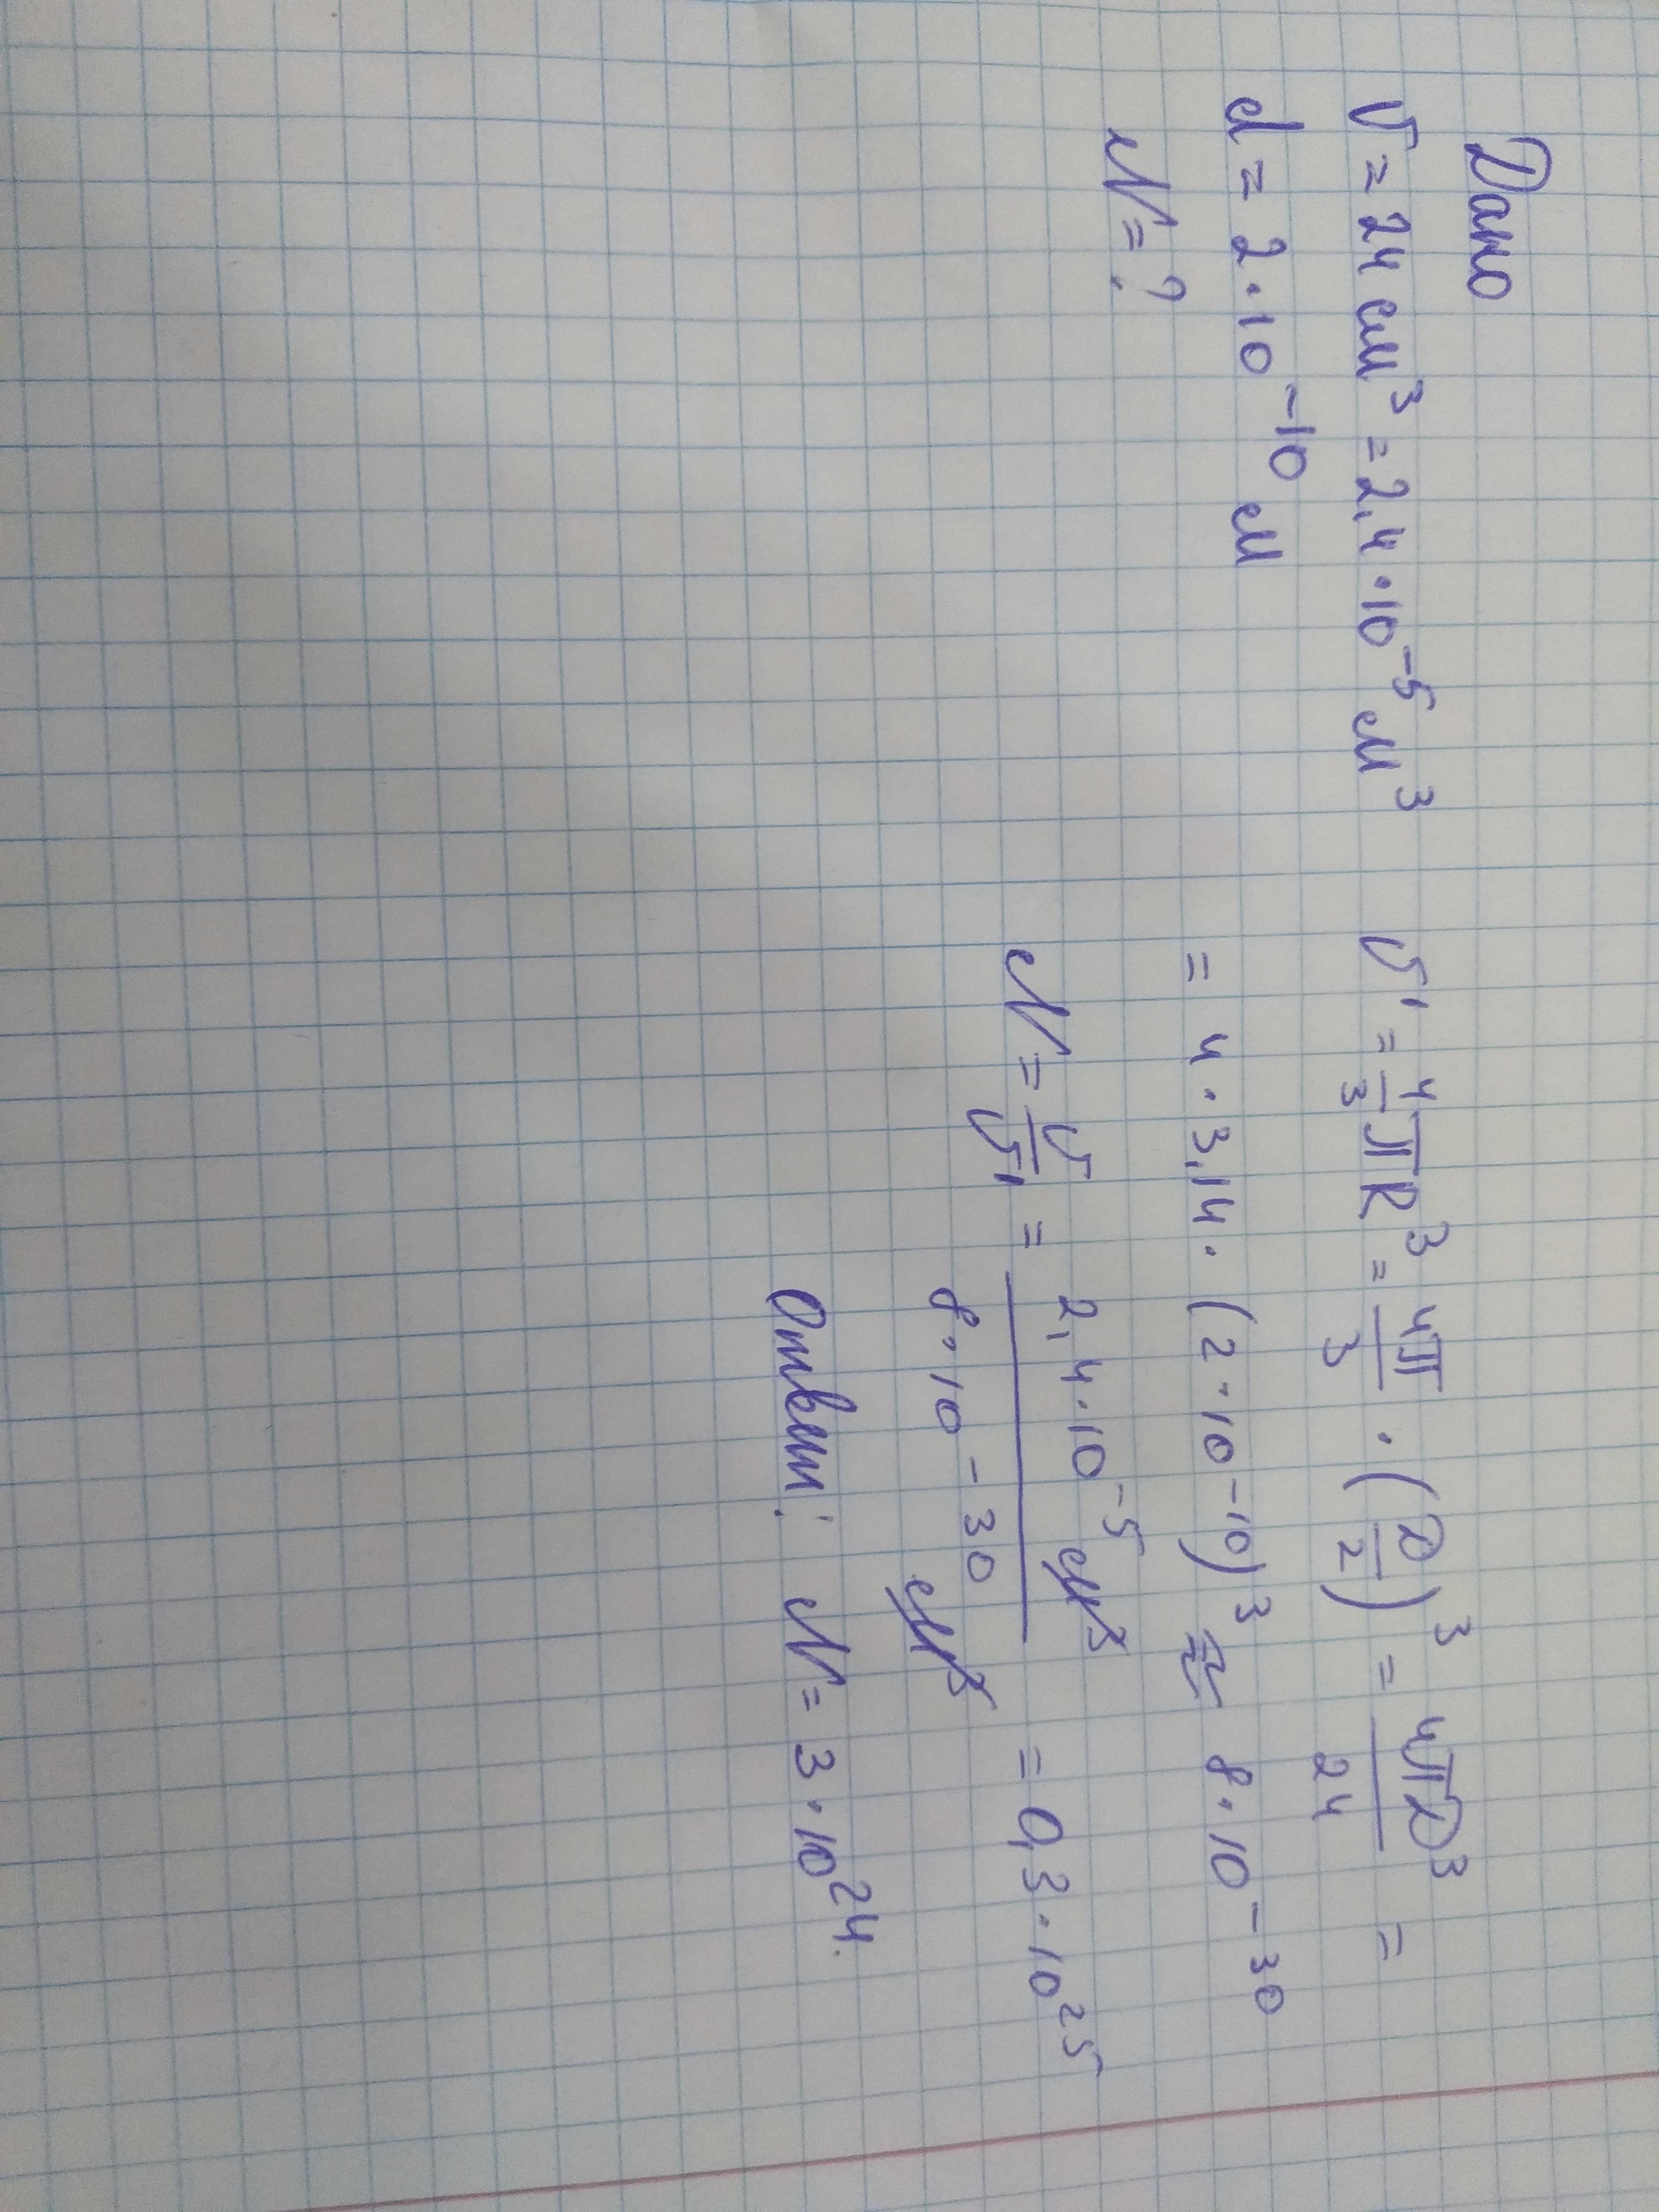 Дано
V = 24 см³ = 2,4 · 10⁻⁵ м³
d = 2 · 10⁻¹⁰ м
N = ?
V' = 4/3 πR³ = 4π/3 · (D/2)³ = 4πD³/24 =
= 4 · 3,14 · (2 · 10⁻¹⁰)³ ≈ 8 · 10⁻³⁰
N = V/V' = 2,4 · 10⁻⁵ м³ / 8 · 10⁻³⁰ м³ = 0,3 · 10²⁵
Ответ: N = 3 · 10²⁴.